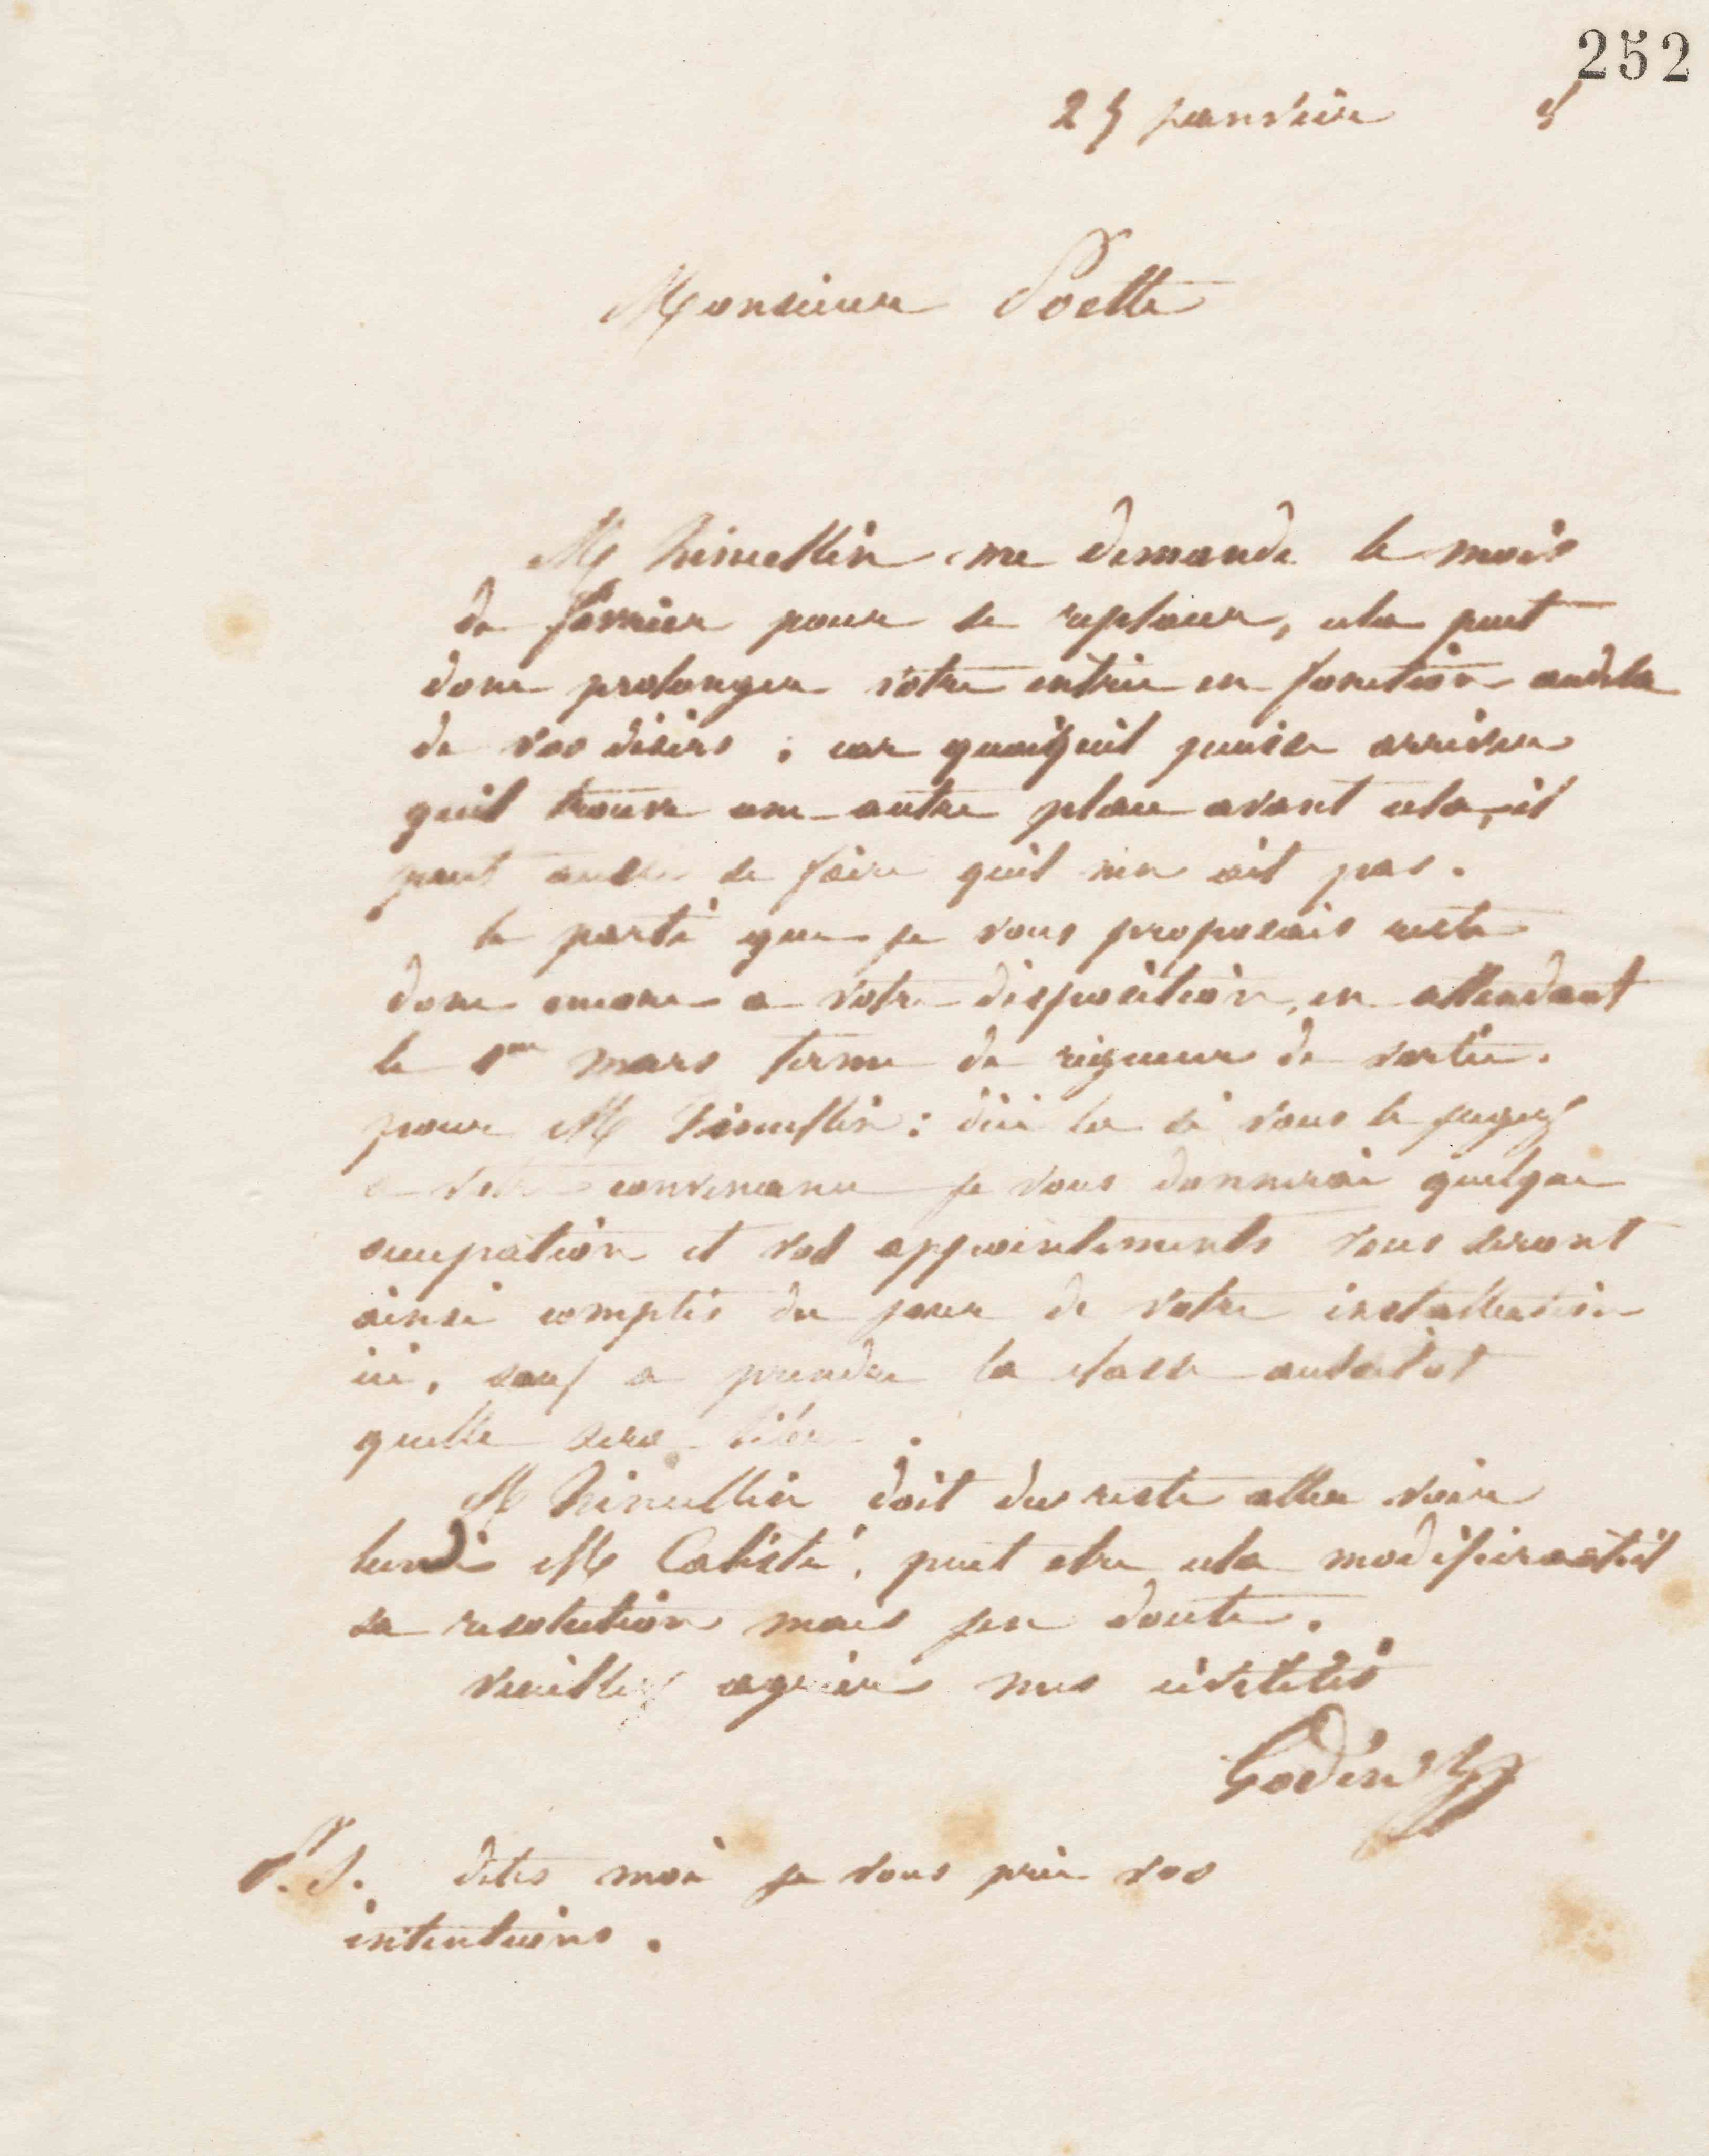 252
25 janvier 5
Monsieur Poette
M me demande le mois
de fevrier pour se replacer, cela peut
donc prolonger votre entrée en fonction audela
de vos désirs ; car quoiquil puisse arriver
quil trouve une autre place avant cela, il
peut aussi se faire quil nen ait pas.
le parti que je vous proposais reste
donc encore a votre disposition, en attendant
le 1er mars terme de rigueur de sortie
pour M : dici la si vous le jugez
a votre convenance je vous donnerai quelque
occupation et vos appointements vous seront
ainsi comptés du jour de votre installation
ici, sauf a prendre la classe aussitot
quelle sera libre.
M doit du reste aller voir
lundi M Calisté, peut etre cela modifierastil
sa resolution mais jen doute.
veuillez agréer mes civilités
Godin
P.S. dites moi je vous prie vos
intentions.